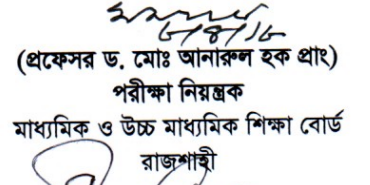 (প্রফেসর ড. মোঃ আনারুল হক প্রাং)
পরীক্ষা নিয়ন্ত্রক
মাধ্যমিক ও উচ্চ মাধ্যমিক শিক্ষা বোর্ড
রাজশাহী